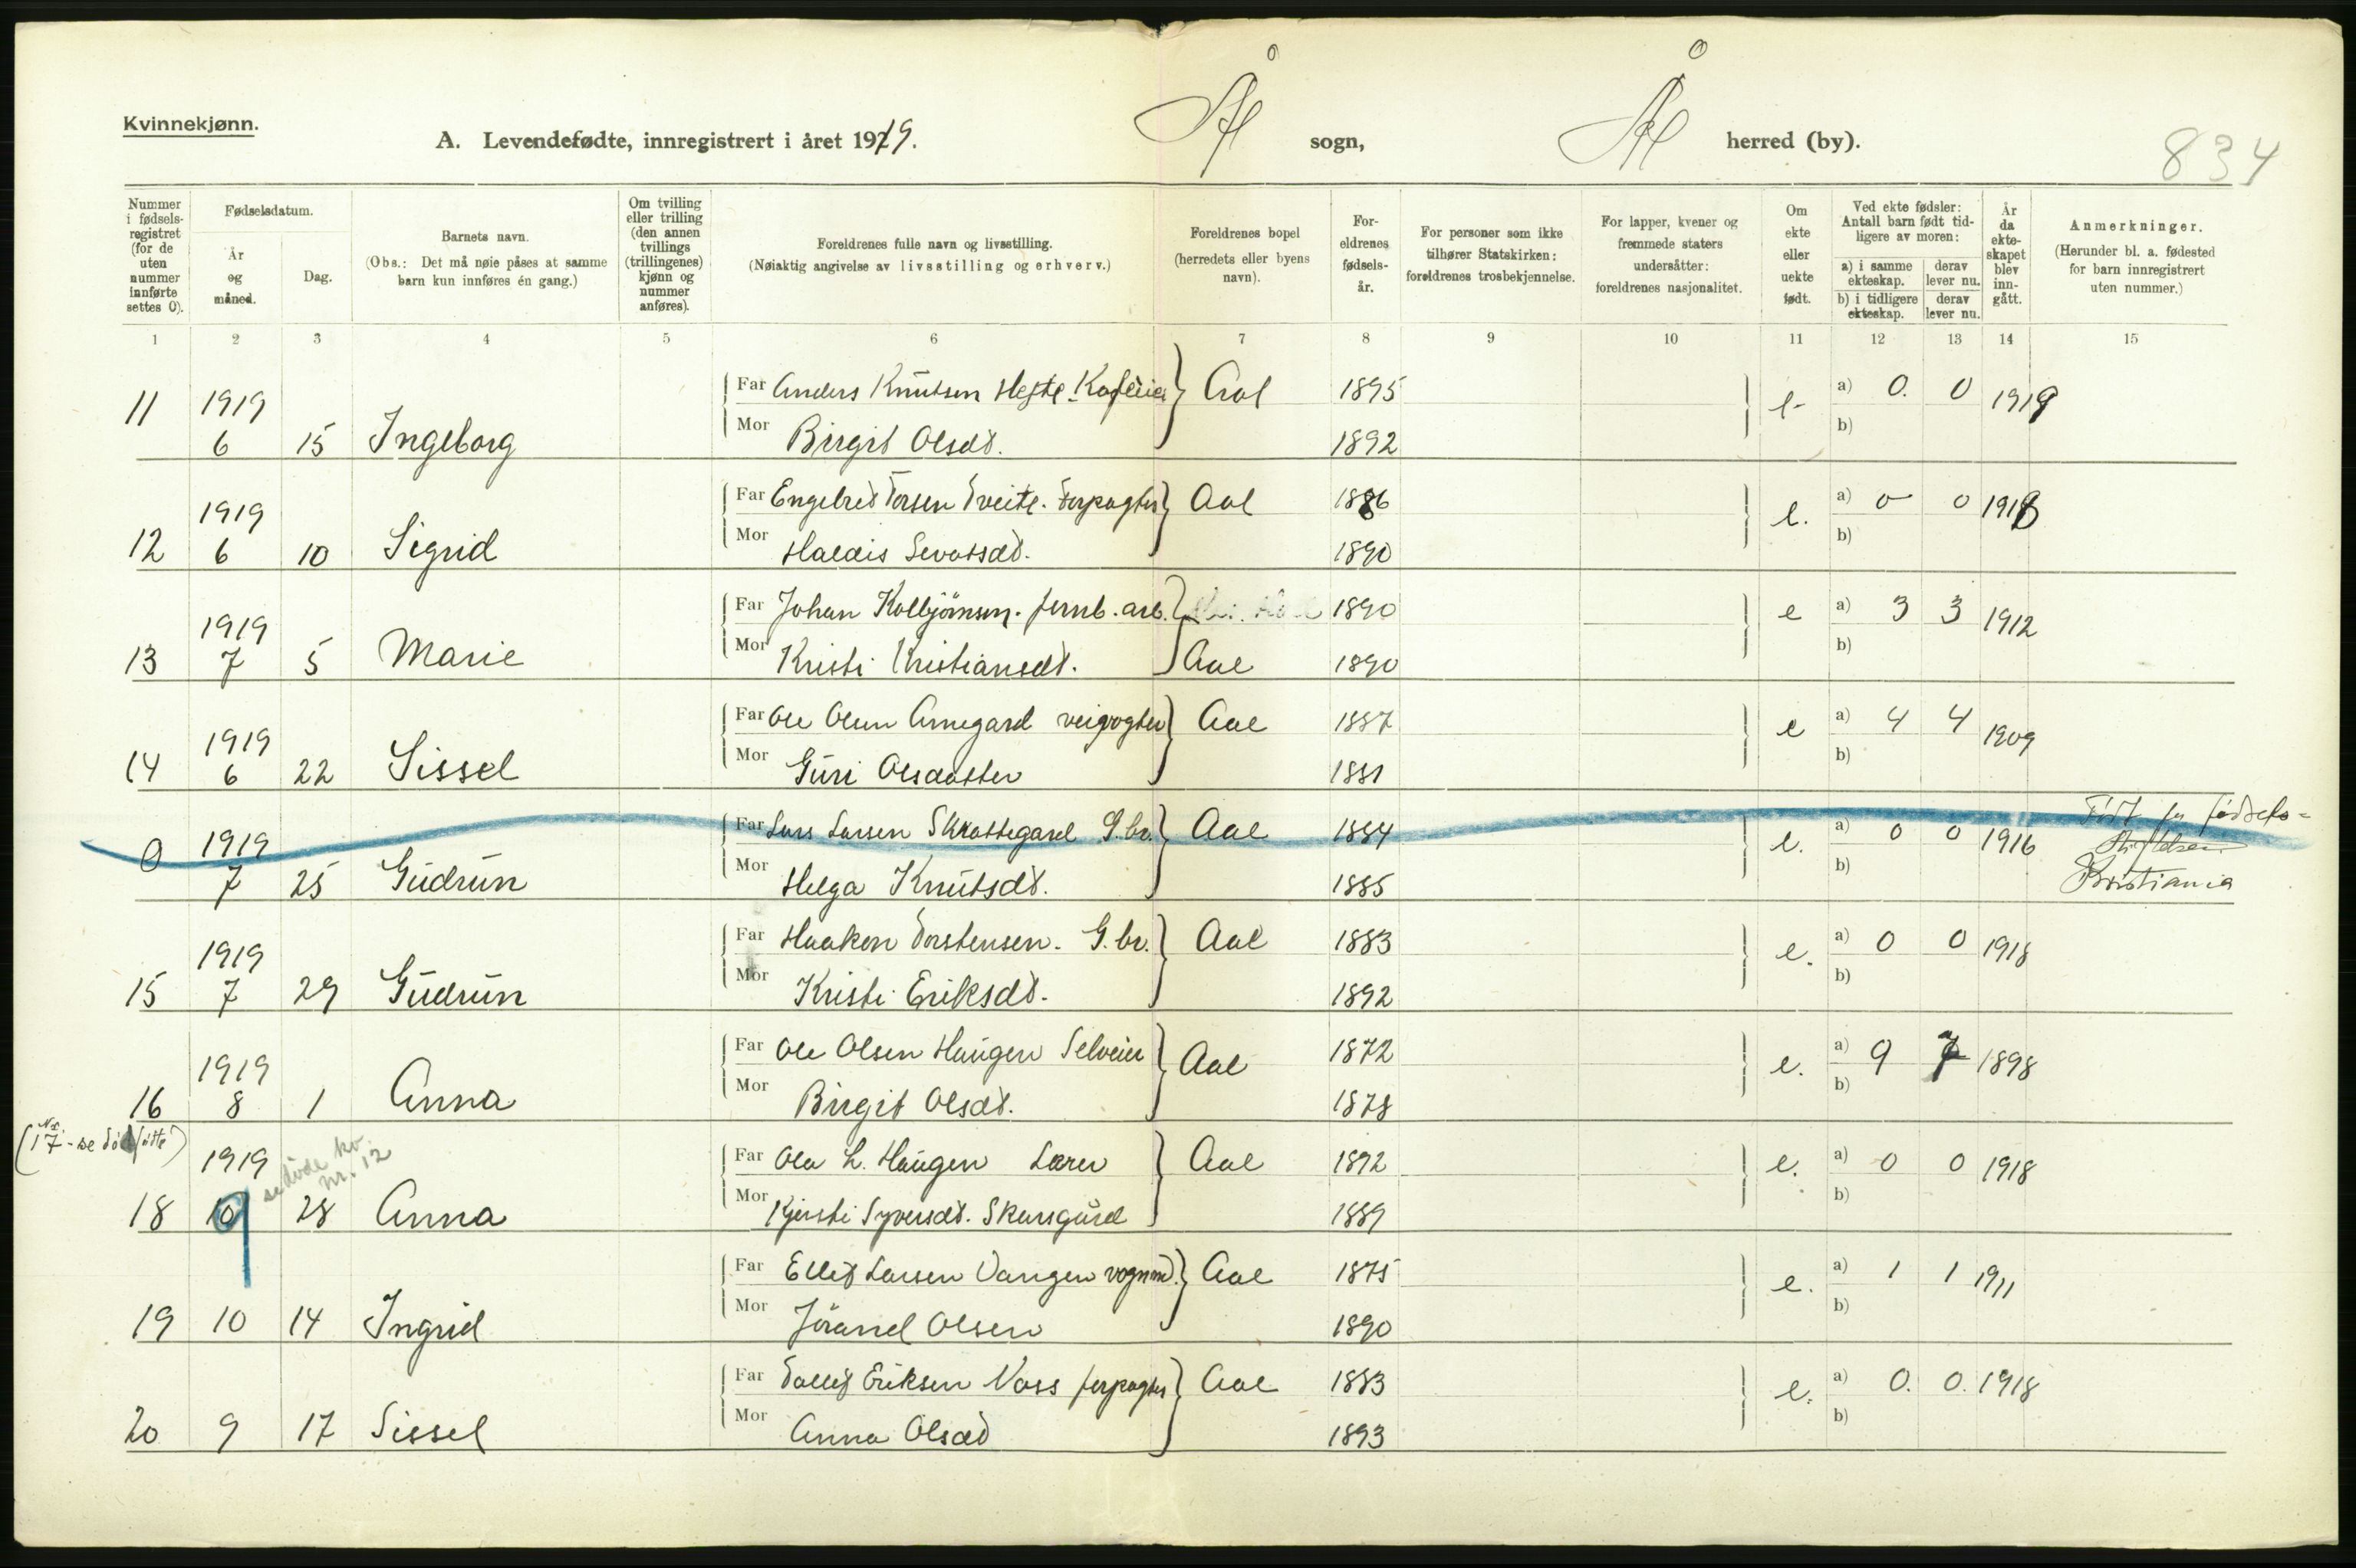 Kvinnekjønn.
A. Levendefødte, innregistrert i året 1919. Ål sogn, Ål herred (by).
834
Nummer i fødsels-registret (for de uten nummer innførte settes 0).
Fødselsdatum.
År og måned.
Dag.
Barnets navn.
(Obs.: Det må nøie påses at samme barn kun innføres én gang.)
Om tvilling eller trilling (den annen tvillings (trillingenes) kjønn og nummer anføres).
Foreldrenes fulle navn og livsstilling.
(Nøiaktig angivelse av livsstilling og erhverv.)
Foreldrenes bopel (herredets eller byens navn).
For-eldrenes fødsels-år.
For personer som ikke tilhører Statskirken: foreldrenes trosbekjennelse.
For lapper, kvener og fremmede staters undersåtter: foreldrenes nasjonalitet.
Om ekte eller uekte født.
Ved ekte fødsler: Antall barn født tid-ligere av moren:
a) i samme ekteskap. derav lever nu.
b) i tidligere ekteskap. derav lever nu.
År da ekte-skapet blev inn-gått.
Anmerkninger.
(Herunder bl. a. fødested for barn innregistrert uten nummer.)
1 2 3 4 5 6 7 8 9 10 11 12 13 14 15
11 1919 Far Anders Knutsen Hefte. Aal 1895 e. a) 0. 0 1919
6 15 Ingeborg Mor Birgit Olsdt. 1892 b)
12 1919 Far Engebret Torsen Tveite. Forpagter Aal 1886 e. a) 0 0 1918
6 10 Sigrid Mor Haldis Sevatsdt. 1890 b)
13 1919 Far Johan Kolbjörnsen. jernb. arb. 1890 e a) 3 3 1912
7 5 Marie Mor Kristi Kristiansdt. Aal 1890 b)
14 1919 Far Ole Olsen Arnegard veivogter Aal 1887 e a) 4 4 1909
6 22 Sissel Mor Guri Olsdatter 1881 b)
0 1919 Far Lars Larsen Skrattegard G.br. Aal 1884 e. a) 0 0 1916 Född paa födsels-
7 25 Gudrun Mor Helga Knutsdt. 1885 b) stiftelsen Kristiania
15 1919 Far Haakon Torstensen. G.br. Aal 1883 e. a) 0 0 1918
7 29 Gudrun Mor Kristi Eriksdt. 1892 b)
16 1919 Far Ole Olsen Haugen Selveier Aal 1872 e. a) 9 7 1898
8 1 Anna Mor Birgit Olsdt. 1878 b)
(Nr. 17 - se dödfödte)
18 1919 se döde kv. nr. 12 Far Ola L. Haugen Lærer Aal 1892 e. a) 0 0 1918
9 28 Anna Mor Kjersti Syversdt. Skarsgard 1889 b)
19 Far Ellef Larsen Vangen vognm. Aal 1875 e. a) 1 1 1911
10 14 Ingrid Mor Jörand Olsen 1890 b)
20 Far Tollef Eriksen Noss forpagter Aal 1883 e. a) 0. 0. 1918
9 17 Sissel Mor Anna Olsdt 1893 b)